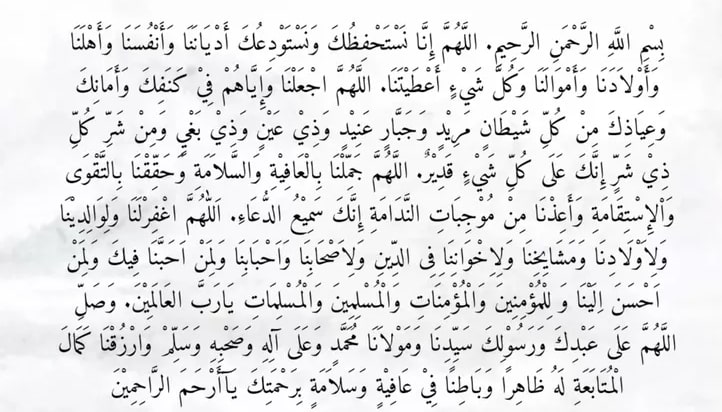 بِسْمِ اللَّهِ الرَّحْمَنِ الرَّحِيمِ. اللَّهُمَّ إِنَّا نَسْتَحْفِظُكَ وَنَسْتَوْدِعُكَ أَدْيَانَنَا وَأَنْفُسَنَا وَأَهْلَنَا
وَأَوْلَادَنَا وَأَمْوَالَنَا وَكُلَّ شَيْءٍ أَعْطَيْتَنَا. اللَّهُمَّ اجْعَلْنَا وَإِيَّاهُمْ فِيْ كَنَفِكَ وَأَمَانِكَ
وَعِيَاذِكَ مِنْ كُلِّ شَيْطَانٍ مَرِيْدٍ وَجَبَّارٍ عَنِيْدٍ وَذِيْ عَيْنٍ وَذِيْ بَغْيٍ وَمِنْ شَرِّ كُلِّ
ذِيْ شَرٍّ إِنَّكَ عَلَى كُلِّ شَيْءٍ قَدِيْرٌ. اللَّهُمَّ جَمِّلْنَا بِالْعَافِيْةِ وَالسَّلَامَةِ وَحَقِّقْنَا بِالتَّقْوَى
وَالْإِسْتِقَامَةِ وَأَعِذْنَا مِنْ مُوْجِبَاتِ النَّدَامَةِ إِنَّكَ سَمِيْعُ الدُّعَاءِ. اَللّٰهُمَّ اغْفِرْلَنَا وَلِوَالِدِيْنَا
وَلاَوْلَادِنَا وَمَشَايِخِنَا وَلِاِخْوَانِنَا فِى الدِّينِ وَلاَصْحَابِنَا وَاَحْبَابِنَا وَلِمَنْ اَحَبَّنَا فِيكَ وَلِمَنْ
اَحْسَنَ اِلَيْنَا وَ لِلْمُؤْمِنِينَ وَالْمُؤْمِنَاتِ وَالْمُسْلِمِينَ وَالْمُسْلِمَاتِ يَارَبَّ الْعَالَمِيْنَ. وَصَلِّ
اللَّهُمَّ عَلَى عَبْدِكَ وَرَسُوْلِكَ سَيِّدِنَا وَمَوْلَانَا مُحَمَّدٍ وَعَلَى آلِهِ وَصَحْبِهِ وَسَلِّمْ وَارْزُقْنَا كَمَالَ
الْمُتَابَعَةِ لَهُ ظَاهِرًا وَبَاطِنًا فِيْ عَافِيَةٍ وَسَلَامَةٍ بِرَحْمَتِكَ يَآأَرْحَمَ الرَّاحِمِيْنَ